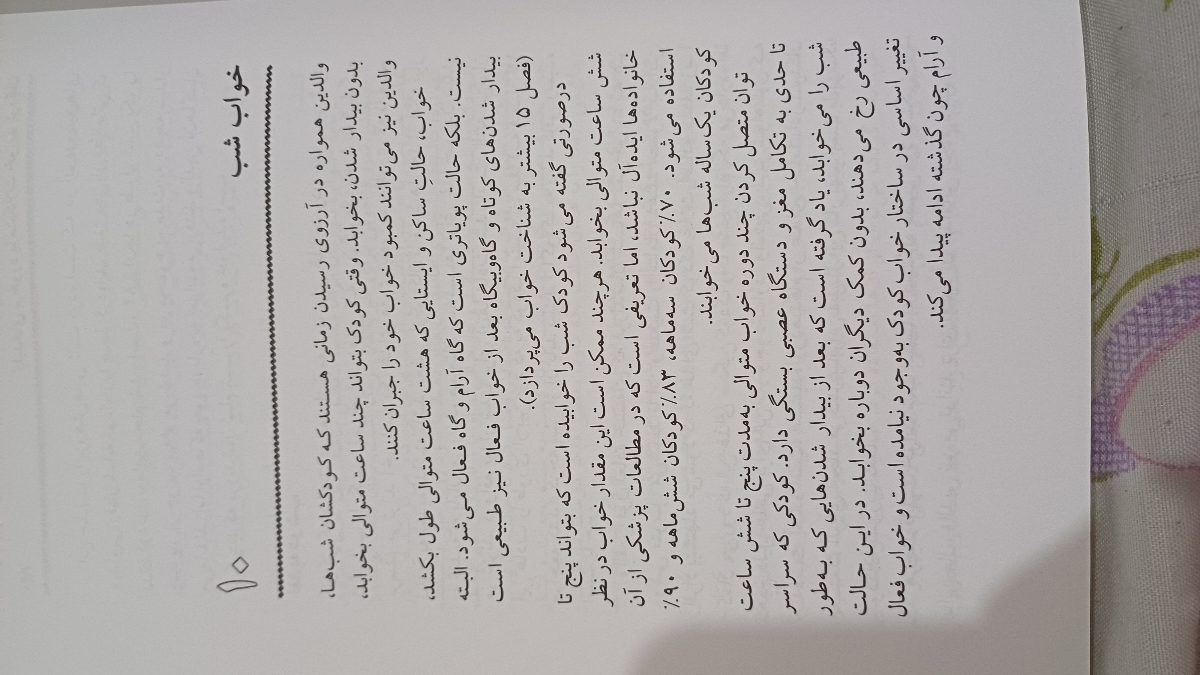 ۱۰
خواب شب
والدین همواره در آرزوی رسیدن زمانی هستند که کودکشان شب‌ها،
بدون بیدار شدن، بخوابد. وقتی کودک بتواند چند ساعت متوالی بخوابد،
والدین نیز می‌توانند کمبود خواب خود را جبران کنند.
خواب، حالتِ ساکن و ایستایی که هشت ساعت متوالی طول بکشد،
نیست. بلکه حالت پویاتری است که گاه آرام و گاه فعال می‌شود. البته
بیدار شدن‌های کوتاه و گاه‌وبیگاه بعد از خواب فعال نیز طبیعی است
(فصل ۱۵ بیشتر به شناخت خواب می‌پردازد).
درصورتی گفته می‌شود کودک شب را خوابیده است که بتواند پنج تا
شش ساعت متوالی بخوابد. هرچند ممکن است این مقدار خواب در نظر
خانواده‌ها ایده‌آل نباشد، اما تعریفی است که در مطالعات پزشکی از آن
استفاده می‌شود. ۷۰٪ کودکان سه‌ماهه، ۸۳٪ کودکان شش‌ماهه و ۹۰٪
کودکان یک‌ساله شب‌ها می‌خوابند.
توان متصل کردن چند دوره خواب متوالی به‌مدت پنج تا شش ساعت
تا حدی به تکامل مغز و دستگاه عصبی بستگی دارد. کودکی که سراسر
شب را می‌خوابد، یاد گرفته است که بعد از بیدار شدن‌هایی که به‌طور
طبیعی رخ می‌دهند، بدون کمک دیگران دوباره بخوابد. در این حالت
تغییر اساسی در ساختار خواب کودک به‌وجود نیامده است و خواب فعال
و آرام چون گذشته ادامه پیدا می‌کند.